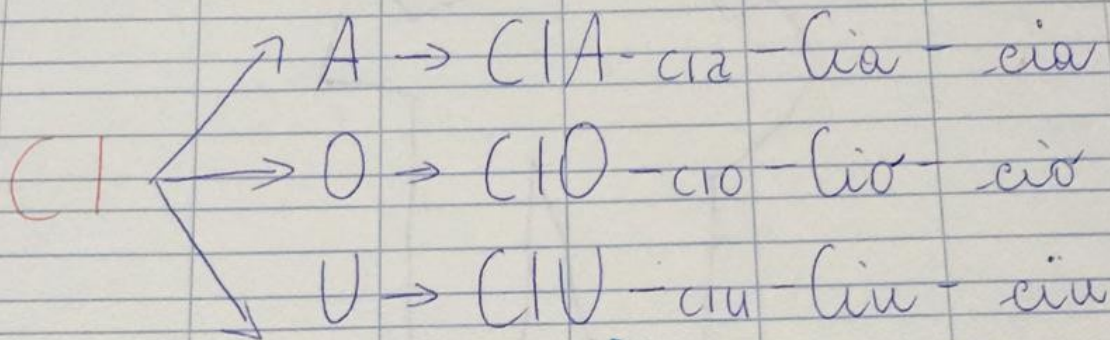 A → CIA - cia - Cia - cia
CI → O → CIO - cio - Cio - cio
U → CIU - ciu - Ciu - ciu